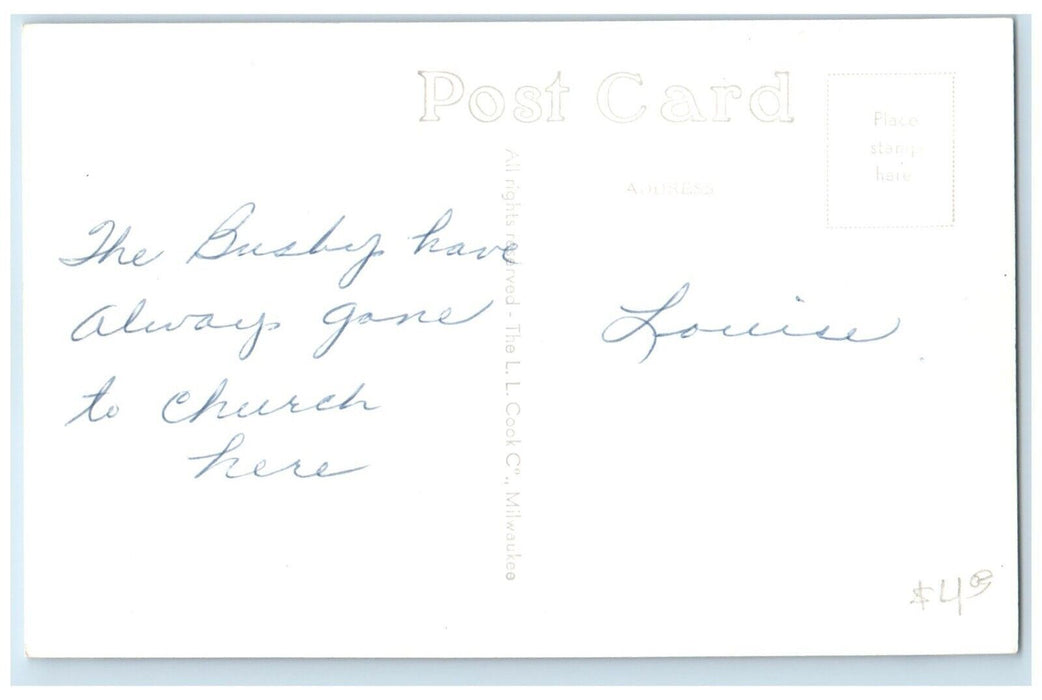 Post Card
Place
stamp
here
ADDRESS
All rights reserved - The L. L. Cook Co., Milwaukee
The Busbys have
always gone
to church
here
Louise
$4